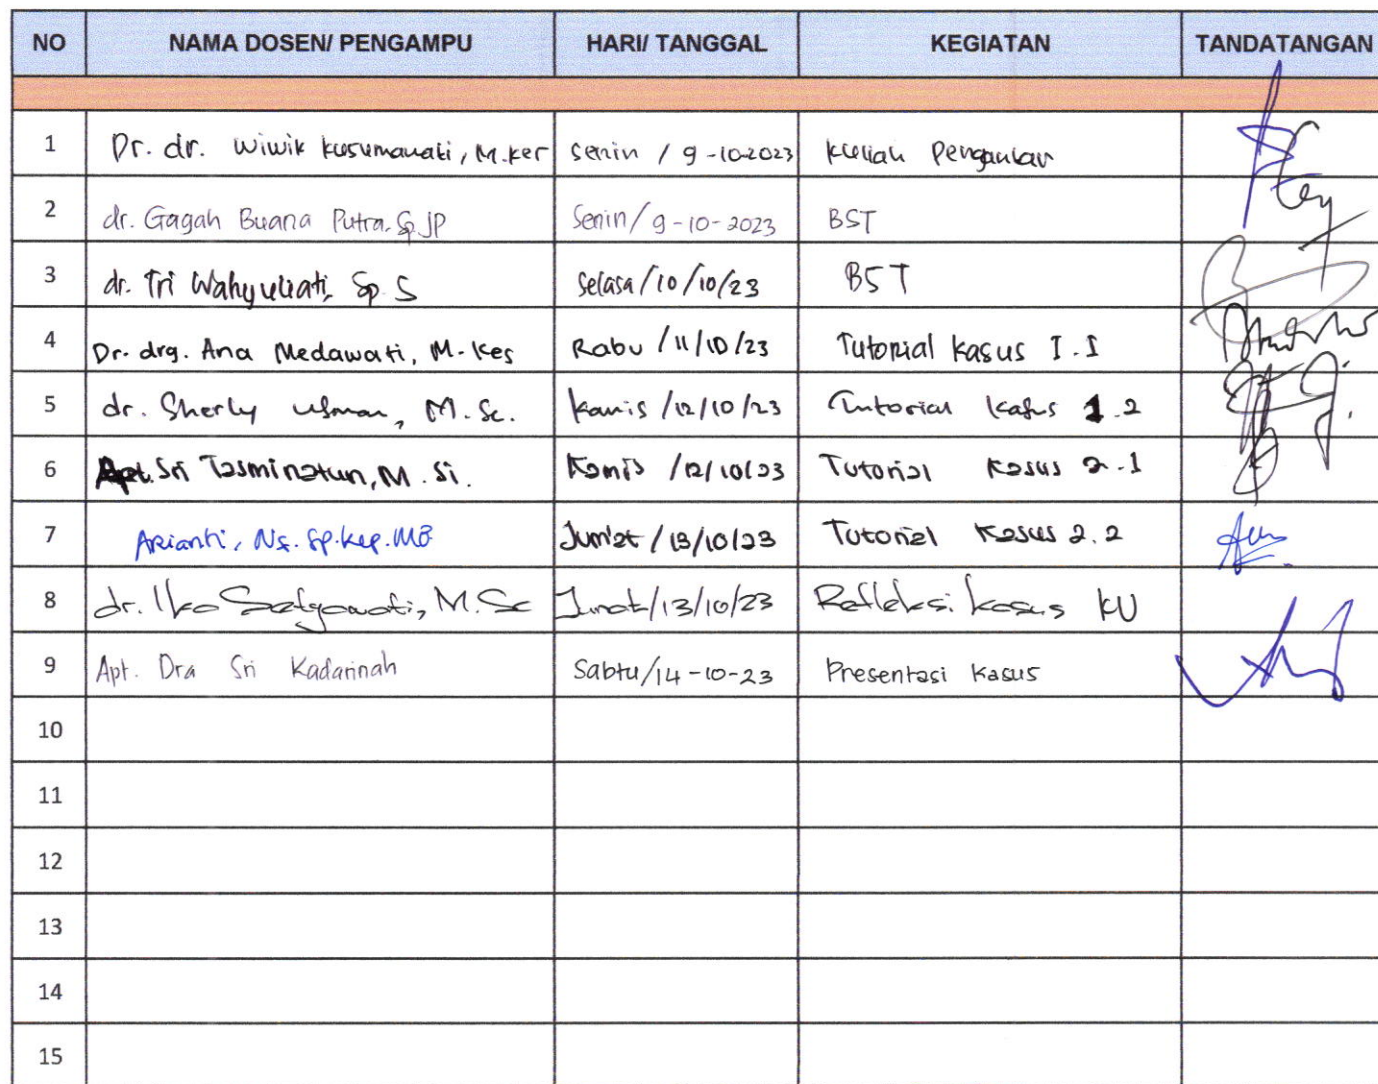 NO NAMA DOSEN/ PENGAMPU HARI/ TANGGAL KEGIATAN TANDATANGAN
1 Dr. dr. Wiwik Kusumawati, M.Kes Senin / 9-10-2023 Kuliah Pengantar
2 dr. Gagah Buana Putra, Sp.JP Senin/ 9-10-2023 BST
3 dr. Tri Wahyuliati, Sp.S Selasa/10/10/23 BST
4 Dr. drg. Ana Medawati, M.Kes Rabu /11/10/23 Tutorial Kasus I.I
5 dr. Sherly Usman, M.Sc. Kamis /12/10/23 Tutorial Kasus 1.2
6 Apt. Sri Tasminatun, M.Si. Kamis /12/10/23 Tutorial Kasus 2.1
7 Arianti, Ns. Sp.Kep.MB Jum'at /13/10/23 Tutorial Kasus 2.2
8 dr. Ika Setyawati, M.Sc Jumat/13/10/23 Refleksi kasus KU
9 Apt. Dra Sri Kadarinah Sabtu/14-10-23 Presentasi Kasus
10
11
12
13
14
15